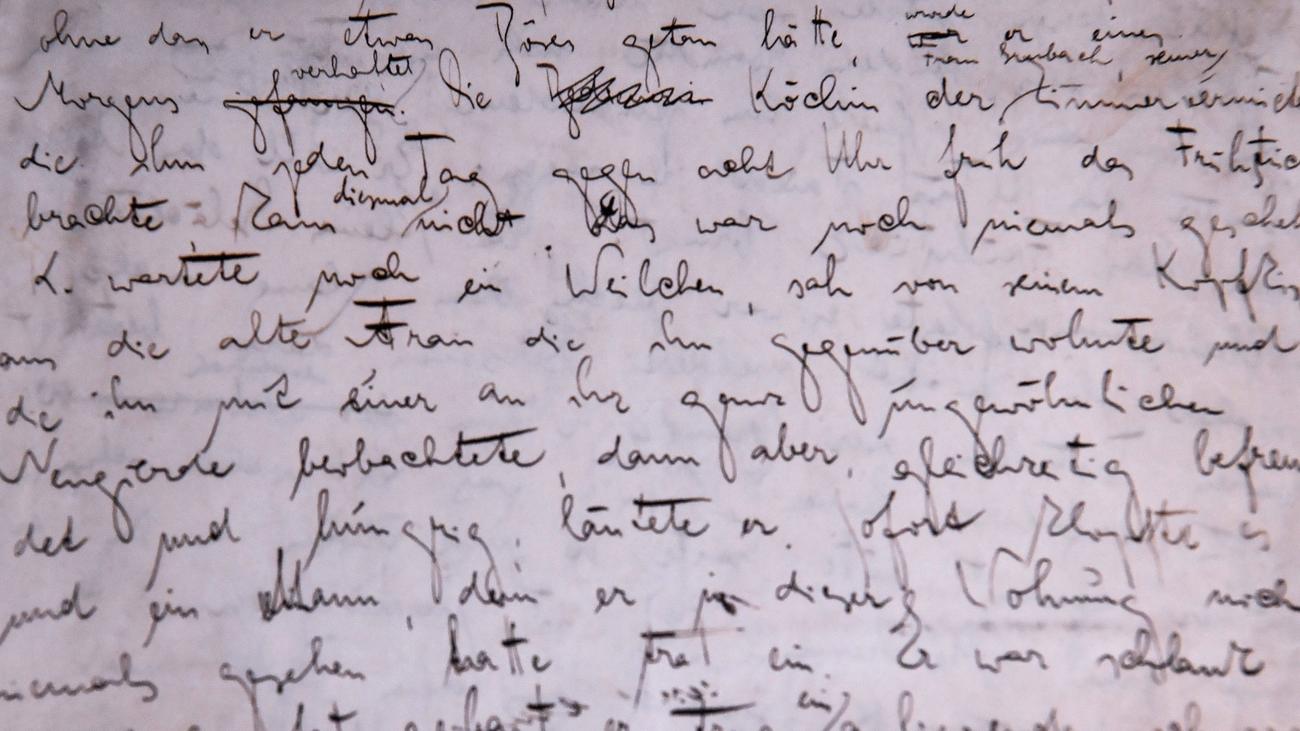 ohne dass er etwas Böses getan hätte, wurde er eines
Morgens verhaftet. Die Köchin der Zimmervermie
Frau Grubach, seiner
die ihm jeden Tag gegen acht Uhr früh das Frühstück
brachte kam diesmal nicht. Das war noch niemals gescheh
K. wartete noch ein Weilchen, sah von seinem Kopfkis
aus die alte Frau die ihm gegenüber wohnte und
die ihn mit einer an ihr ganz ungewöhnlichen
Neugierde beobachtete, dann aber, gleichzeitig befrem
det und hungrig, läutete er. Sofort klopfte es
und ein Mann, den er in dieser Wohnung noch
niemals gesehen hatte trat ein. Er war schlank